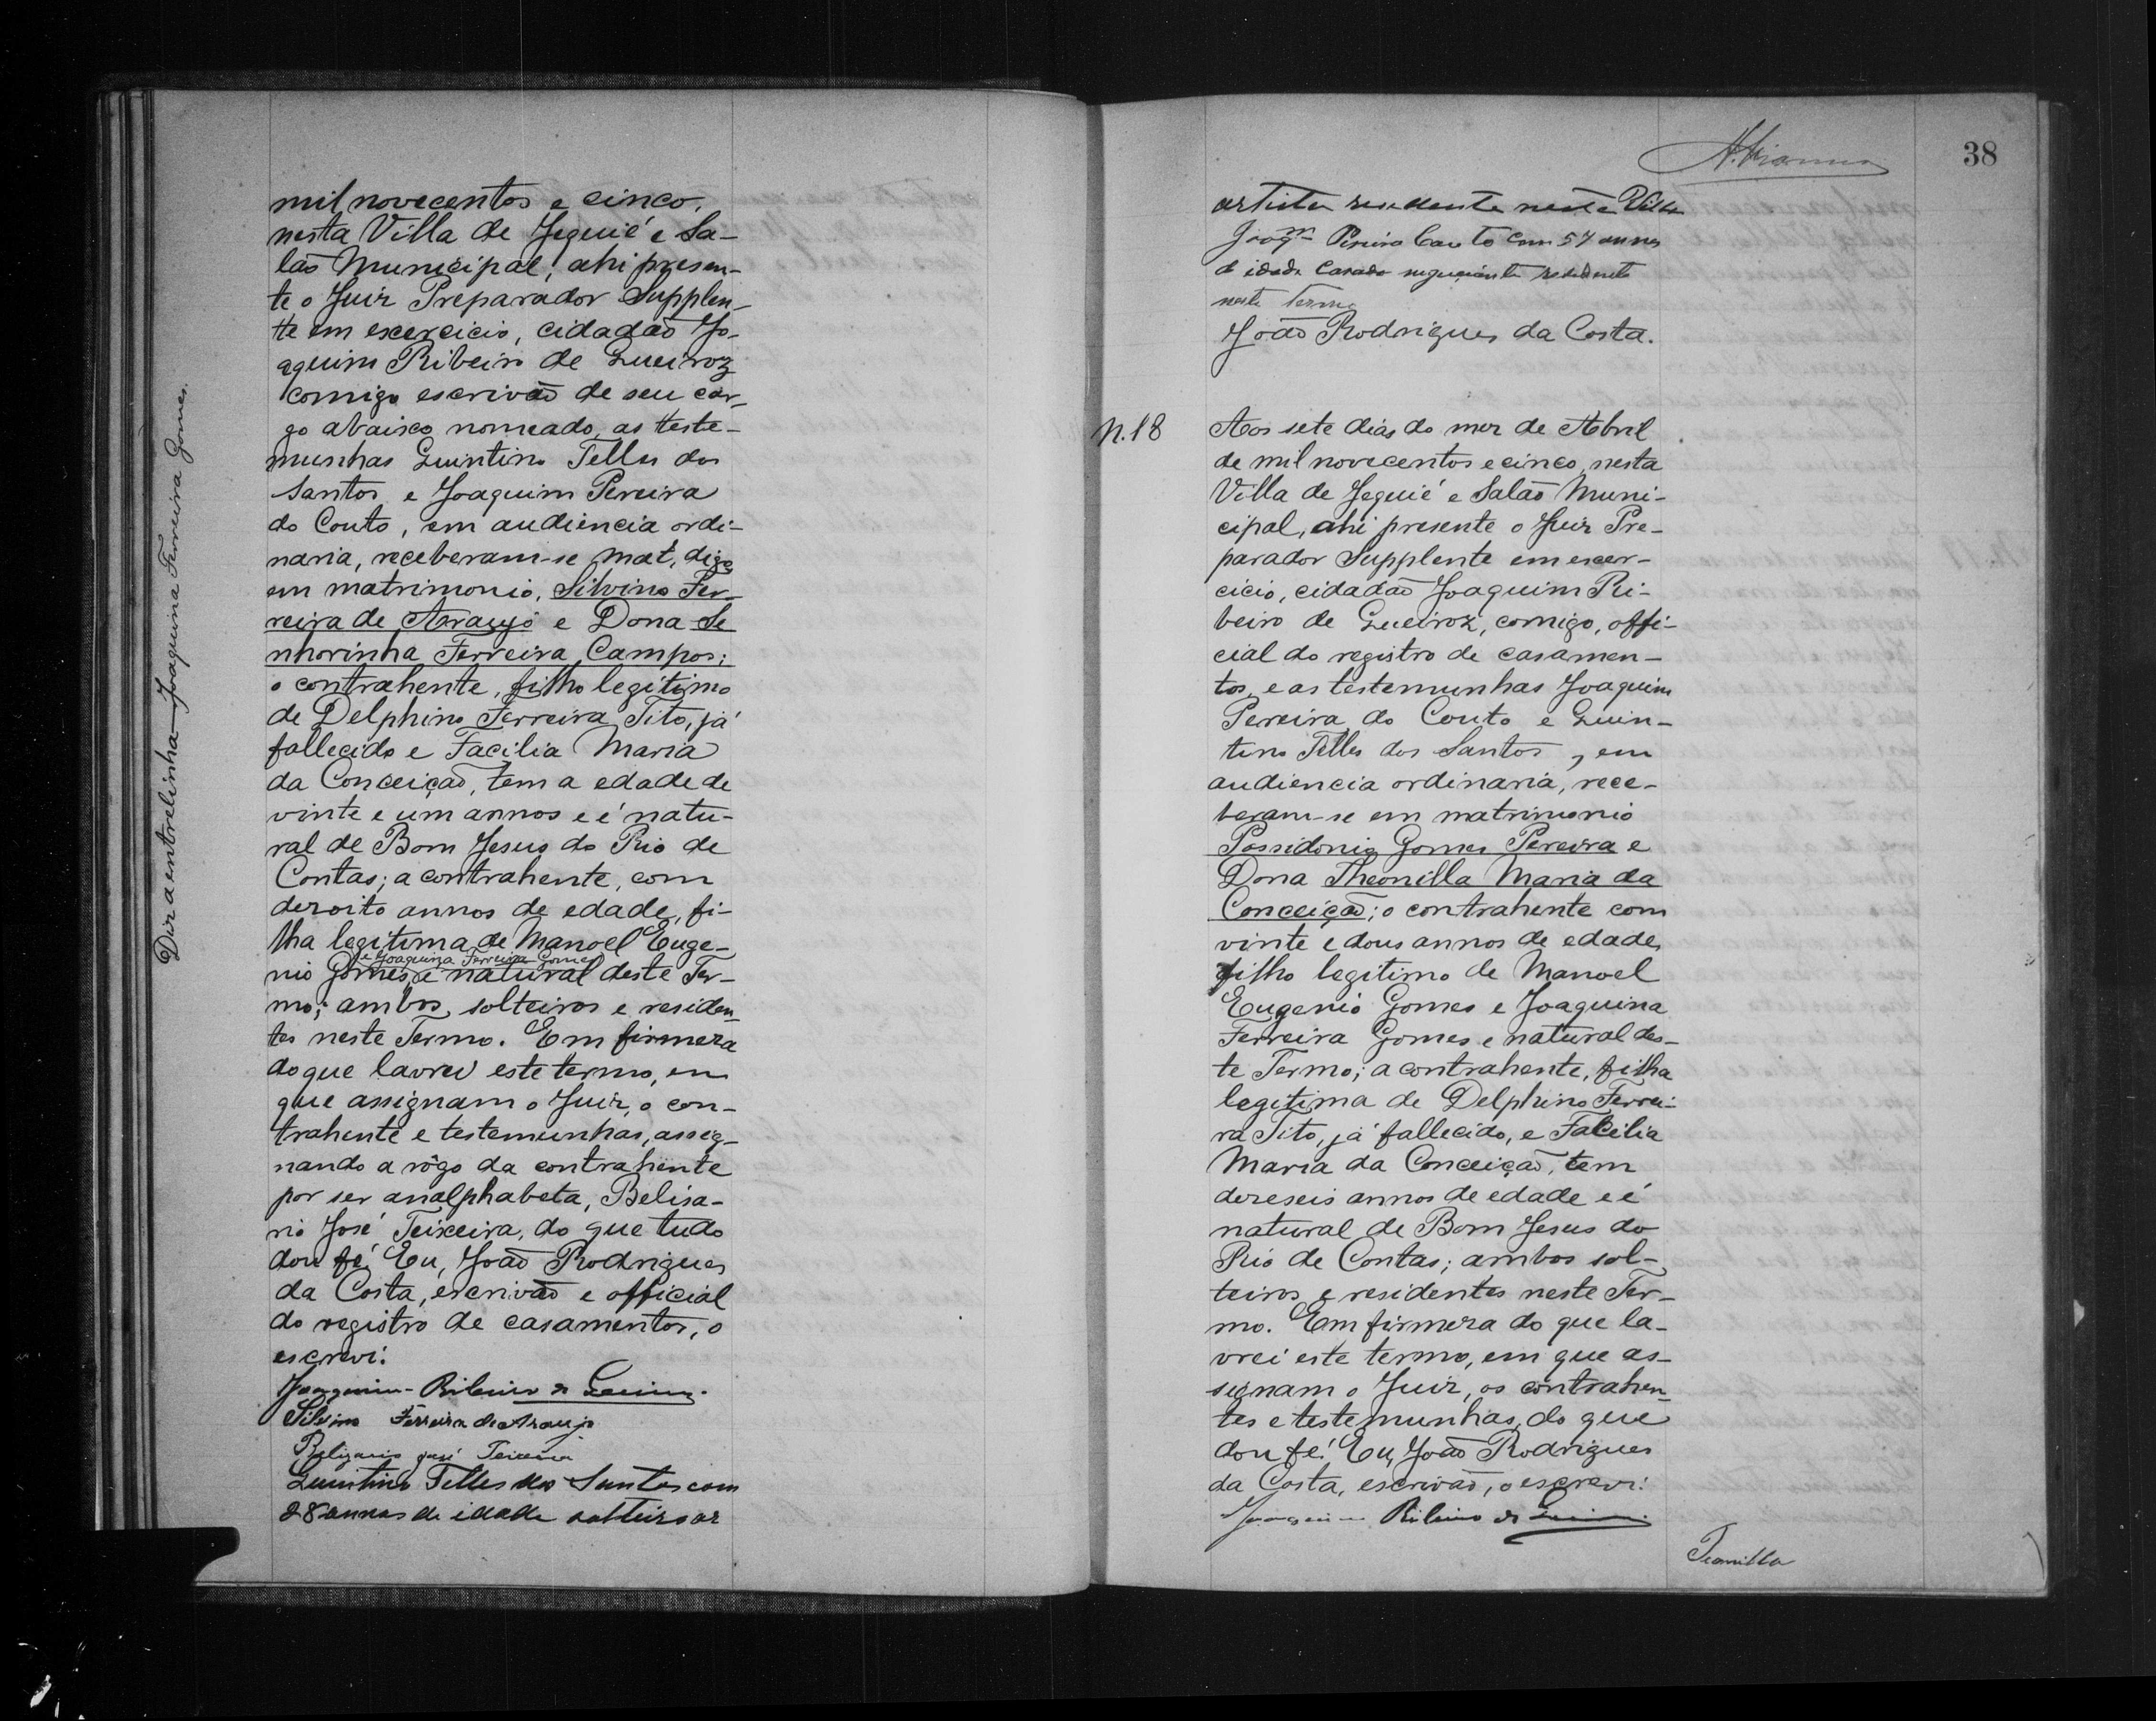 Diz a entrelinha - Joaquina Ferreira Gomes.
mil novecentos e cinco,
nesta Villa de Jequié e Sa-
lão Municipal, ahi presen-
te o Juiz Preparador Supplen-
te em escercicio, cidadão Jo-
aquim Ribeiro de Queiroz
comigo escrivão de seu car-
go abaixo nomeado, as teste-
munhas Quintino Telles dos
Santos e Joaquim Pereira
do Couto, em audiencia ordi-
naria, receberam-se mat, digo
em matrimonio, Silvino Fer-
reira de Araujo e Dona Se
nhorinha Ferreira Campos;
o contrahente, filho legitimo
de Delphino Ferreira Tito, já
fallecido e Facilia Maria
da Conceição, tem a edade de
vinte e um annos e é natu-
ral de Bom Jesus do Rio de
Contas; a contrahente, com
dezoito annos de edade, fi-
lha legitima de Manoel Euge-
e Joaquina Ferreira Gomes
nio Gomes, e natural deste Ter-
mo; ambos, solteiros e residen-
tes neste Termo. Em firmeza
do que lavrei este termo, em
que assignam o Juiz, o con-
trahente e testemunhas, assig-
nando a rôgo da contrahente
por ser analphabeta, Belisa-
rio José Teixeira, do que tudo
dou fé. Eu, João Rodrigues
da Costa, escrivão e official
do registro de casamentos, o
escrevi.
Joaquim Ribeiro de Queiroz.
Silvino Ferreira de Araujo
Belizario José Teixeira
Quintino Telles dos Santos com
28 annos de idade solteiro ar
38
artista residente nesta Villa
Joaqm Pereira Couto com 57 annos
de idade Casado negociante residente
neste Termo
João Rodrigues da Costa.
N. 18
Aos sete dias do mez de Abril
de mil novecentos e cinco, nesta
Villa de Jequié e Salão Muni-
cipal, ahi presente o Juiz Pre-
parador Supplente em escer-
cicio, cidadão Joaquim Ri-
beiro de Queiroz, comigo, offi-
cial do registro de casamen-
tos, e as testemunhas Joaquim
Pereira do Couto e Quin-
tino Telles dos Santos, em
audiencia ordinaria, rece-
beram-se em matrimonio
Possidonio Gomes Pereira e
Dona Theonilla Maria da
Conceição; o contrahente com
vinte e dous annos de edade,
filho legitimo de Manoel
Eugenio Gomes e Joaquina
Ferreira Gomes e natural des-
te Termo; a contrahente, filha
legitima de Delphino Ferrei-
ra Tito, já fallecido, e Facilia
Maria da Conceição, tem
dezeseis annos de edade e é
natural de Bom Jesus do
Rio de Contas; ambos sol-
teiros e residentes neste Ter-
mo. Em firmeza do que la-
vrei este termo, em que as-
signam o Juiz, os contrahen-
tes e testemunhas, do que
dou fé. Eu, João Rodrigues
da Costa, escrivão, o escrevi.
Joaquim Ribeiro de Queiroz